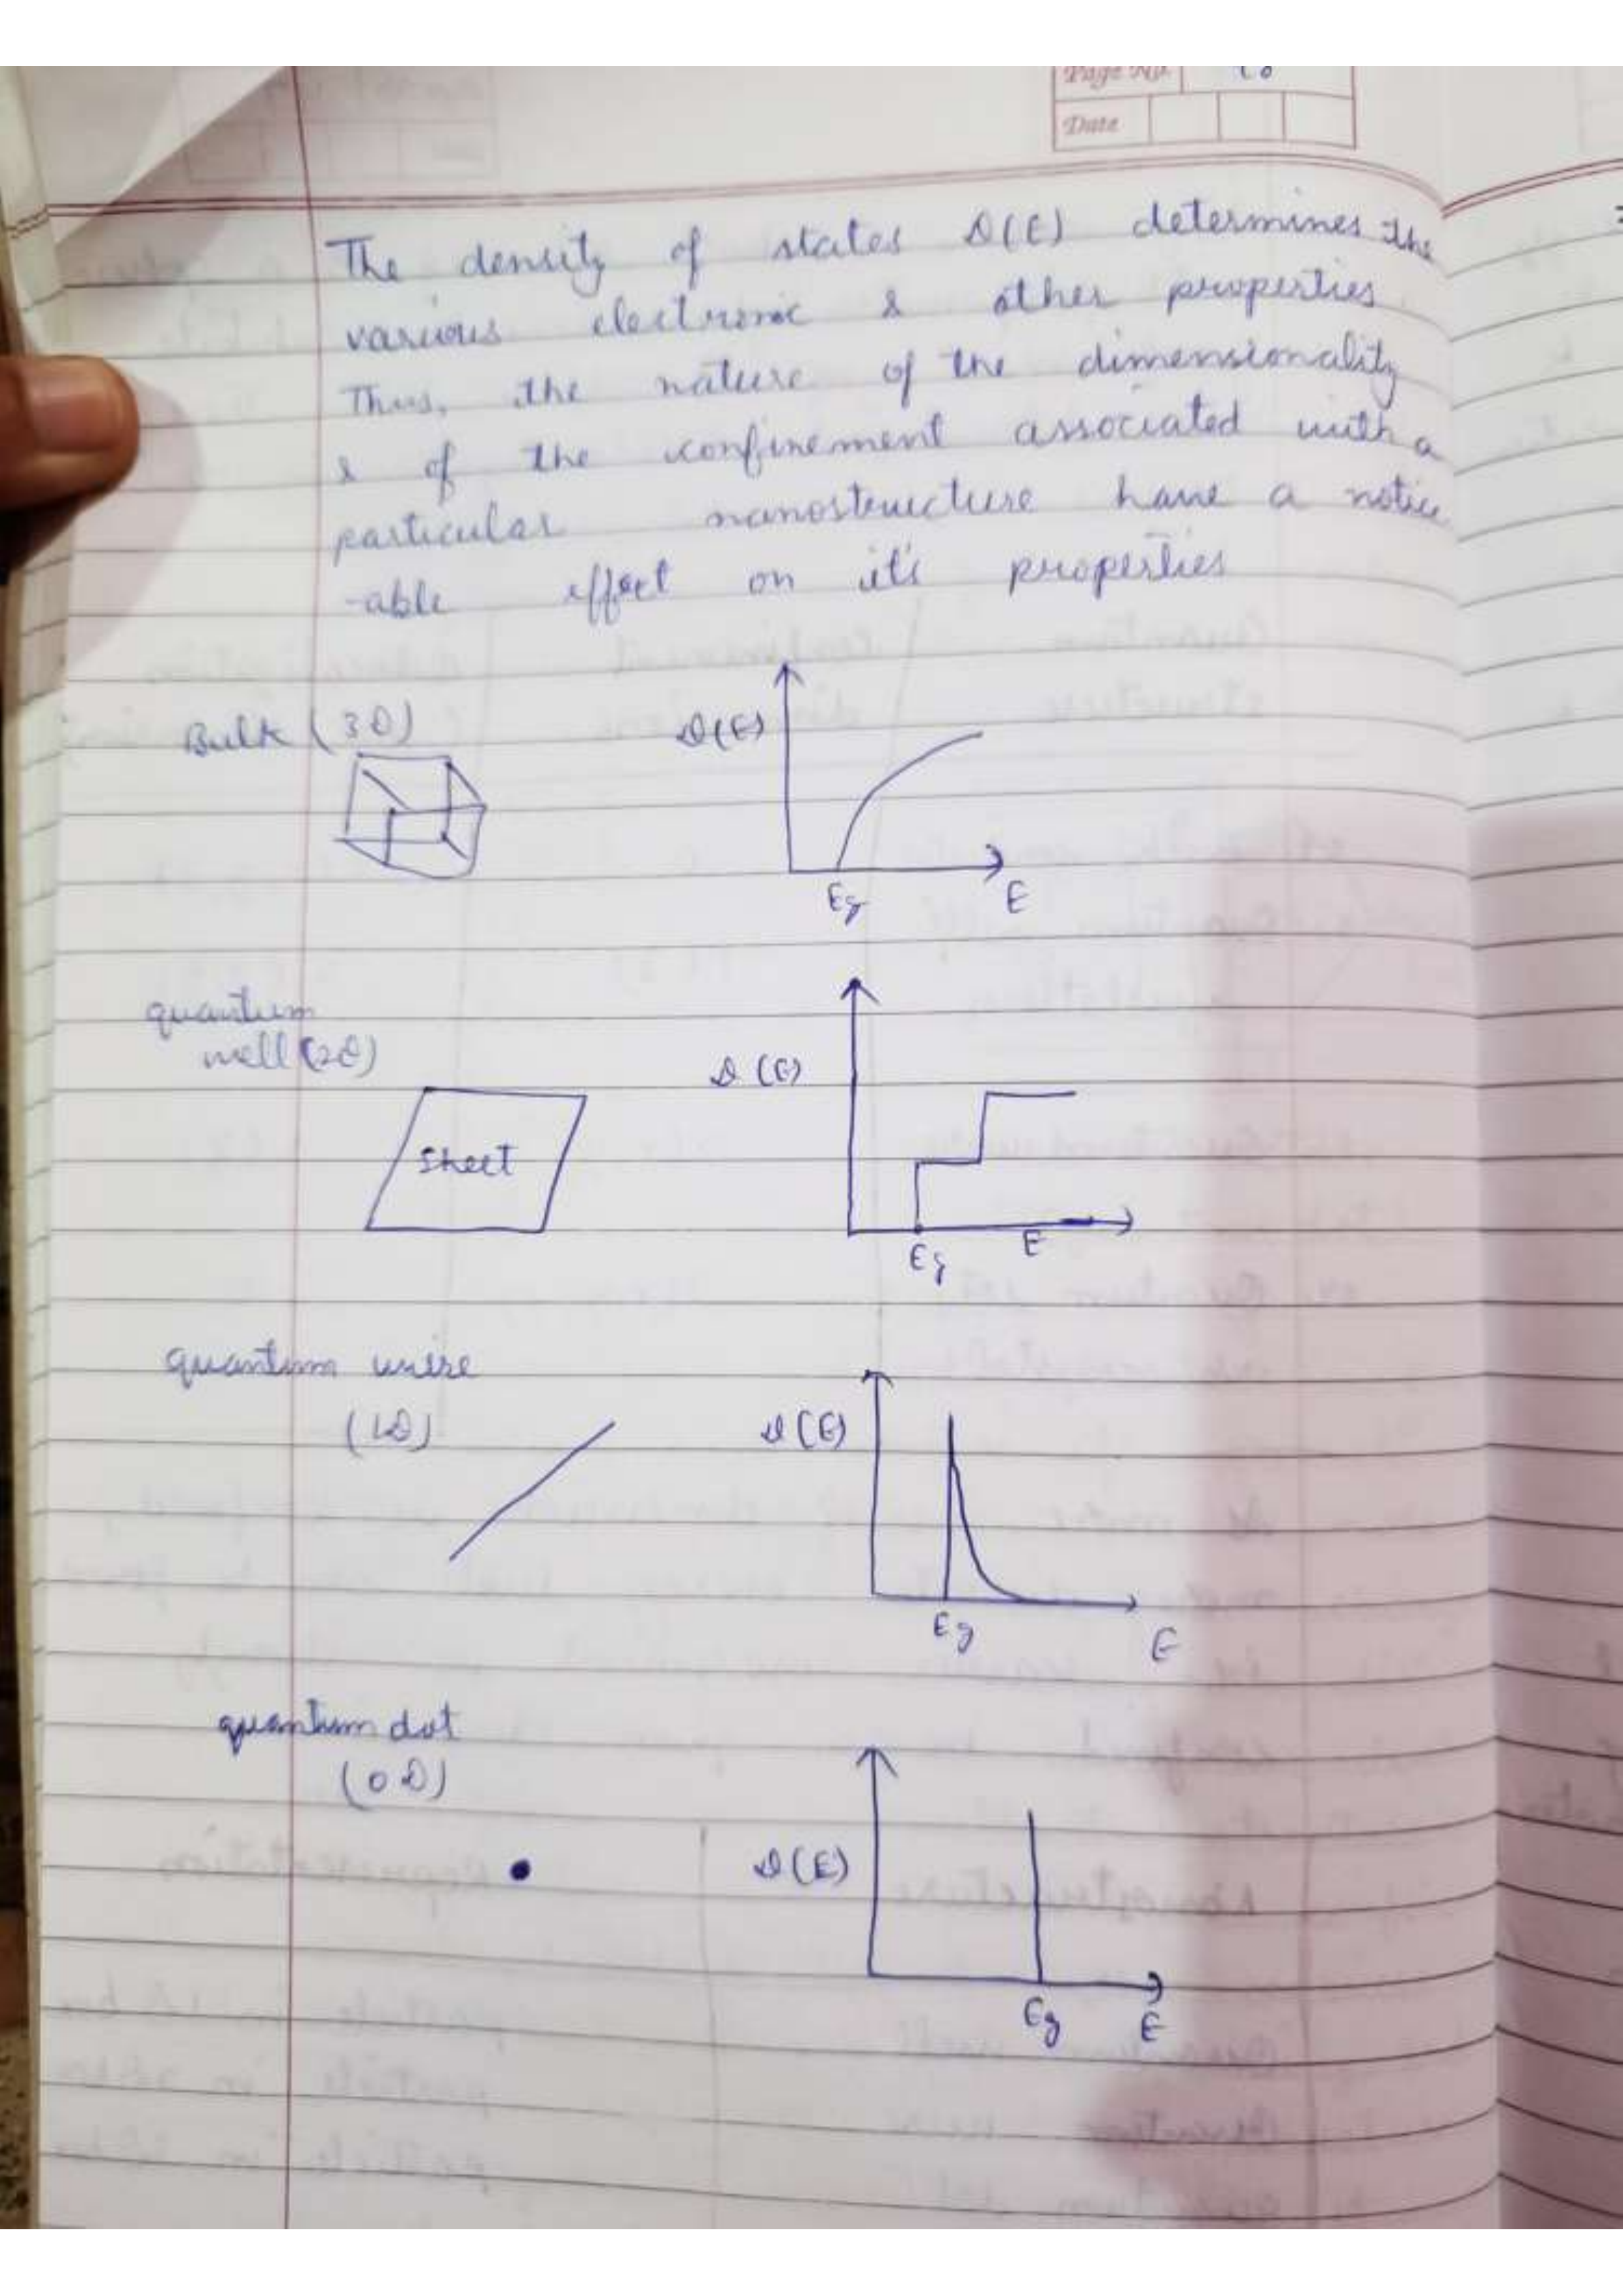 Page No.
Date
The density of states D(E) determines the
various electronic & other properties
Thus, the nature of the dimensionality
& of the confinement associated with a
particular nanostructure have a notice
-able effect on it's properties
Bulk (3D)
D(E)
Eg E
quantum
well (2D)
D(E)
Sheet
Eg E
quantum wire
(1D)
D(E)
Eg E
quantum dot
(0D)
D(E)
Eg E